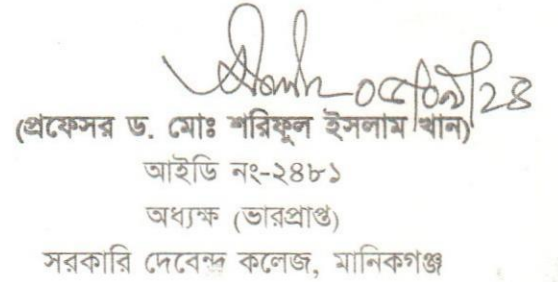 ০৫/০৯/২৪
(প্রফেসর ড. মোঃ শরিফুল ইসলাম খান)
আইডি নং-২৪৮১
অধ্যক্ষ (ভারপ্রাপ্ত)
সরকারি দেবেন্দ্র কলেজ, মানিকগঞ্জ